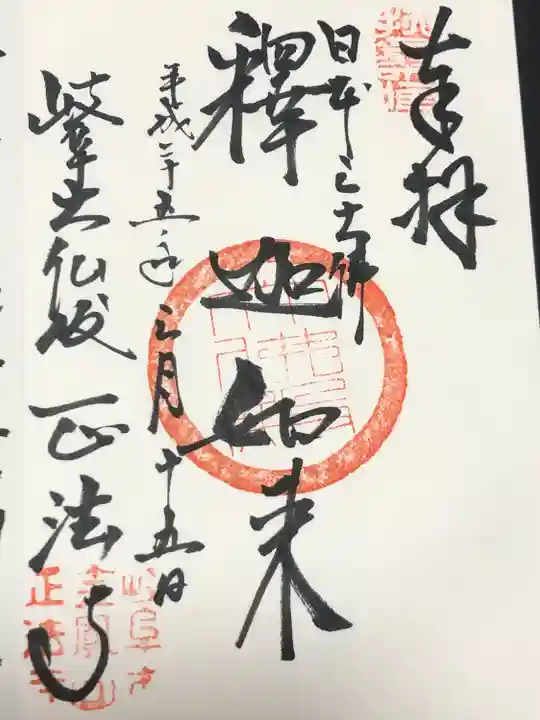 奉拝
日本三大佛
釋迦如来
平成二十五年三月十五日
岐阜大仏殿 正法寺
岐阜市
金鳳山
正法寺